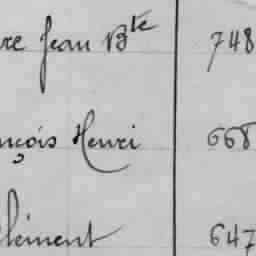 re Jean Bte 748
nçois Henri 668
lément 647